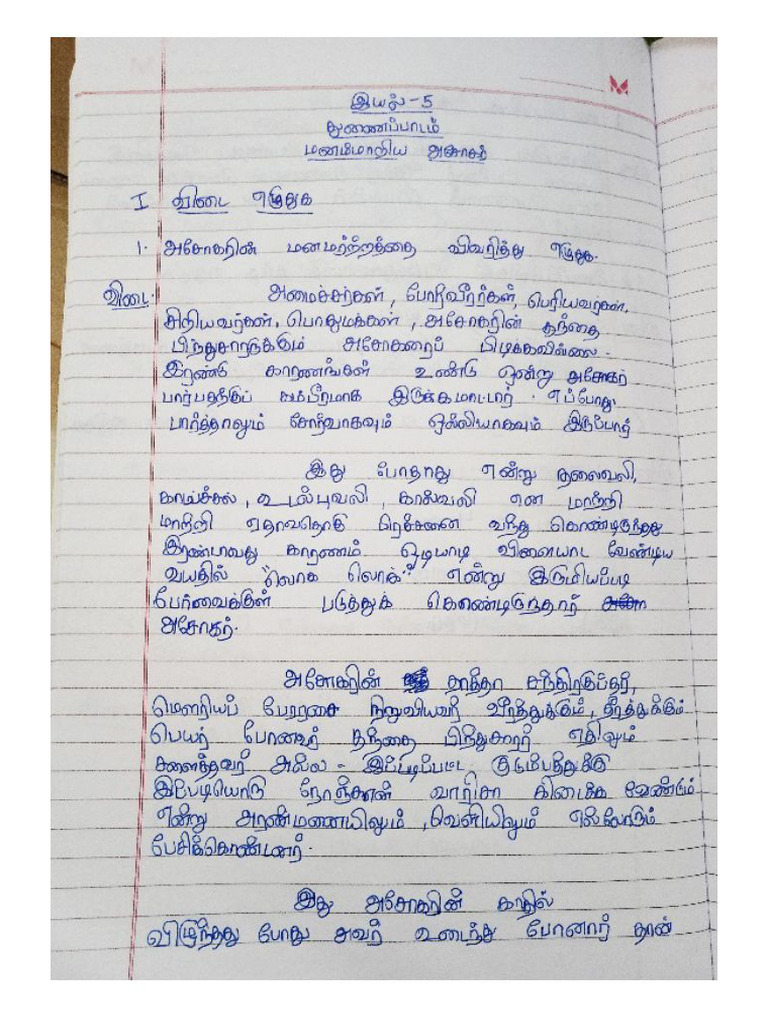 இயல்-5
துணைப்பாடம்
மனம்மாறிய அசோகர்
I விடை எழுதுக
1. அசோகரின் மனமாற்றத்தை விவரித்து எழுதுக.
விடை: அமைச்சர்கள், போர்வீரர்கள், பெரியவர்கள்,
சிறியவர்கள், பொதுமக்கள், அசோகரின் தந்தை
பிந்துசாரருக்கும் அசோகரைப் பிடிக்கவில்லை.
இரண்டு காரணங்கள் உண்டு ஒன்று அசோகர்
பார்பதற்குப் கம்பீரமாக இருக்கமாட்டார். எப்போது
பார்த்தாலும் சோர்வாகவும் ஒல்லியாகவும் இருப்பார்
இது போதாது என்று தலைவலி,
காய்ச்சல், உடல்புவலி, கால்வலி என மாற்றி
மாற்றி ஏதாவதொரு பிரச்சனை வந்து கொண்டிருந்தது
இரண்டாவது காரணம் ஓடியாடி விளையாட வேண்டிய
வயதில் "லொக லொக்" என்று இருமியப்படி
போர்வைக்குள் படுத்துக் கொண்டிருந்தார்
அசோகர்.
அசோகரின் தாத்தா சந்திரகுப்தர்,
மௌரியப் பேரரசை நிறுவியவர் வீரத்துக்கும், தீரத்துக்கும்
பெயர் போனவர் தந்தை பிந்துசாரர் எதிலும்
சளைத்தவர் அல்ல - இப்படிப்பட்ட குடும்பத்துக்கு
இபேடியொரு நோஞ்சான் வாரிசா கிடைக்க வேண்டும்
என்று அரண்மனையிலும், வெளியிலும் எல்லோரும்
பேசிக்கொண்டனர்.
இது அசோகரின் காதில்
விழுந்தது போது அவர் உடைந்து போனார் தான்